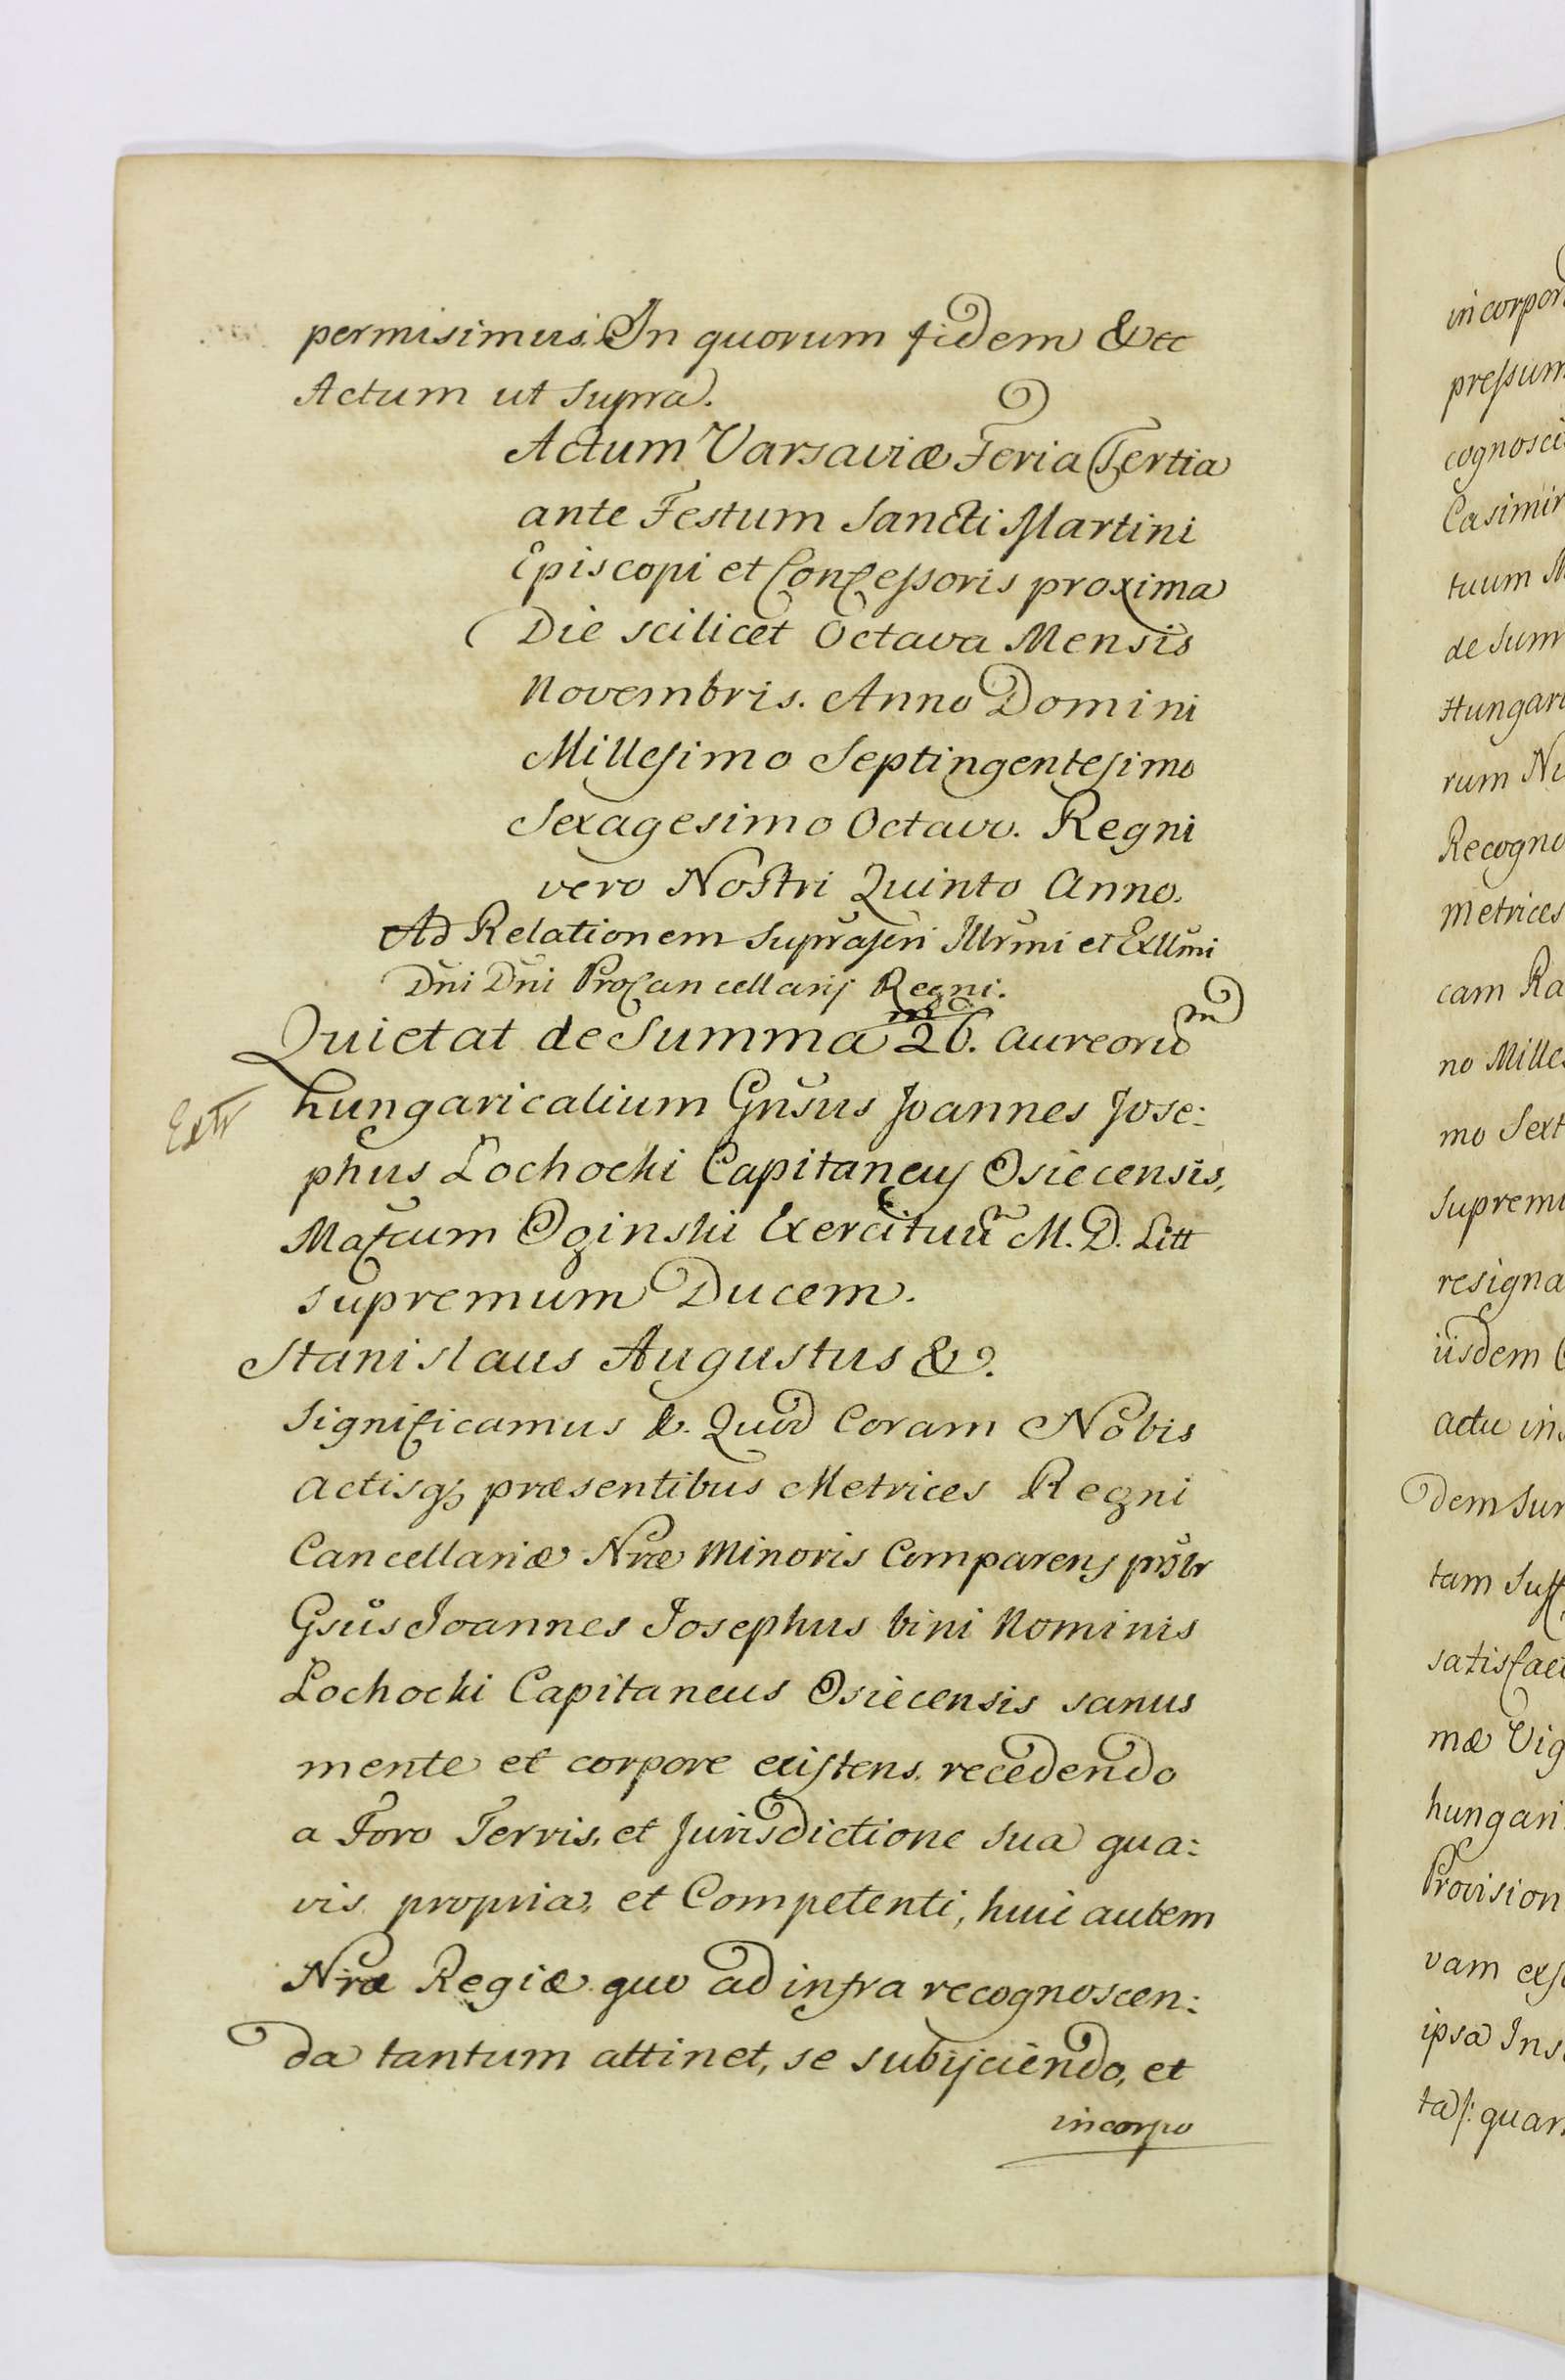 permisimus. In quorum fidem & ec
Actum ut supra.
Actum Varsaviæ Feria Tertia
ante Festum Sancti Martini
Episcopi et Confessoris proxima
Die scilicet Octava Mensis
Novembris. Anno Domini
Millesimo Septingentesimo
Sexagesimo Octavo. Regni
vero Nostri Quinto Anno.
Ad Relationem suprascri Illrmi et Exllmi
Dni Dni ProCancellarij Regni.
Quietat de Summa m/26. aureorum
Extr
hungaricalium Gnsus Joannes Jose:
phus Lochocki Capitaneus Osiecensis,
Mafcum Oginski Exercituum M. D. Litt
supremum Ducem.
Stanislaus Augustus &.
Significamus &. Quod Coram Nobis
Actisq; præsentibus Metrices Regni
Cancellariæ Nræ Minoris Comparens psltr
Gsus Joannes Josephus bini Nominis
Lochocki Capitaneus Osiecensis sanus
mente et corpore existens. recedendo
a Foro Terris, et Jurisdictione sua qua:
vis propria, et Competenti, huic autem
Nræ Regiæ quo ad infra recognoscen:
da tantum attinet, se subijciendo, et
incorpo
incorpor
pressum
cognosci
Casimir
tuum M
de Sum
Hungari
rum Ni
Recogno
Metrices
cam Ra
no Mille
mo Sext
Supremi
resigna
iisdem
actu in
dem Sum
tam Suff
satisfact
mæ Vig
hungari
Provision
vam exs
ipsa Ins
ta/: quar